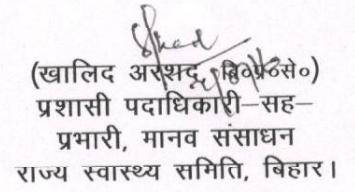 (खालिद अरशद, बि०प्र०से०)
प्रशासी पदाधिकारी–सह–
प्रभारी, मानव संसाधन
राज्य स्वास्थ्य समिति, बिहार।